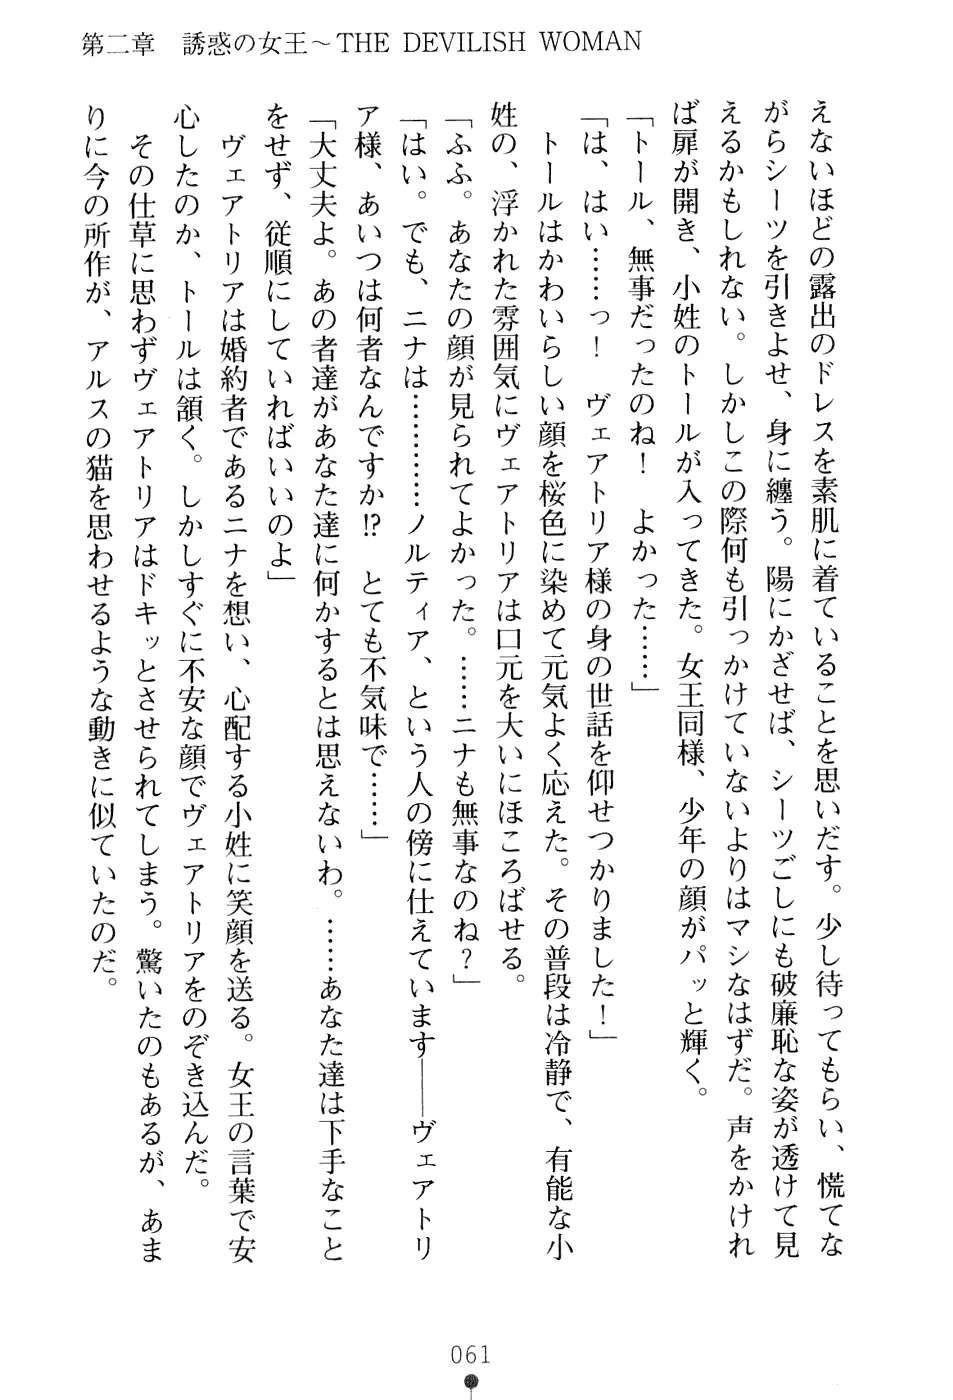 第二章　誘惑の女王～THE DEVILISH WOMAN
えないほどの露出のドレスを素肌に着ていることを思いだす。少し待ってもらい、慌てな
がらシーツを引きよせ、身に纏う。陽にかざせば、シーツごしにも破廉恥な姿が透けて見
えるかもしれない。しかしこの際何も引っかけていないよりはマシなはずだ。声をかけれ
ば扉が開き、小姓のトールが入ってきた。女王同様、少年の顔がパッと輝く。
「トール、無事だったのね！　よかった……」
「は、はい……っ！　ヴェアトリア様の身の世話を仰せつかりました！」
　トールはかわいらしい顔を桜色に染めて元気よく応えた。その普段は冷静で、有能な小
姓の、浮かれた雰囲気にヴェアトリアは口元を大いにほころばせる。
「ふふ。あなたの顔が見られてよかった。……ニナも無事なのね？」
「はい。でも、ニナは…………ノルティア、という人の傍に仕えています――ヴェアトリ
ア様、あいつは何者なんですか!?　とても不気味で……」
「大丈夫よ。あの者達があなた達に何かするとは思えないわ。……あなた達は下手なこと
をせず、従順にしていればいいのよ」
　ヴェアトリアは婚約者であるニナを想い、心配する小姓に笑顔を送る。女王の言葉で安
心したのか、トールは頷く。しかしすぐに不安な顔でヴェアトリアをのぞき込んだ。
　その仕草に思わずヴェアトリアはドキッとさせられてしまう。驚いたのもあるが、あま
りに今の所作が、アルスの猫を思わせるような動きに似ていたのだ。
061